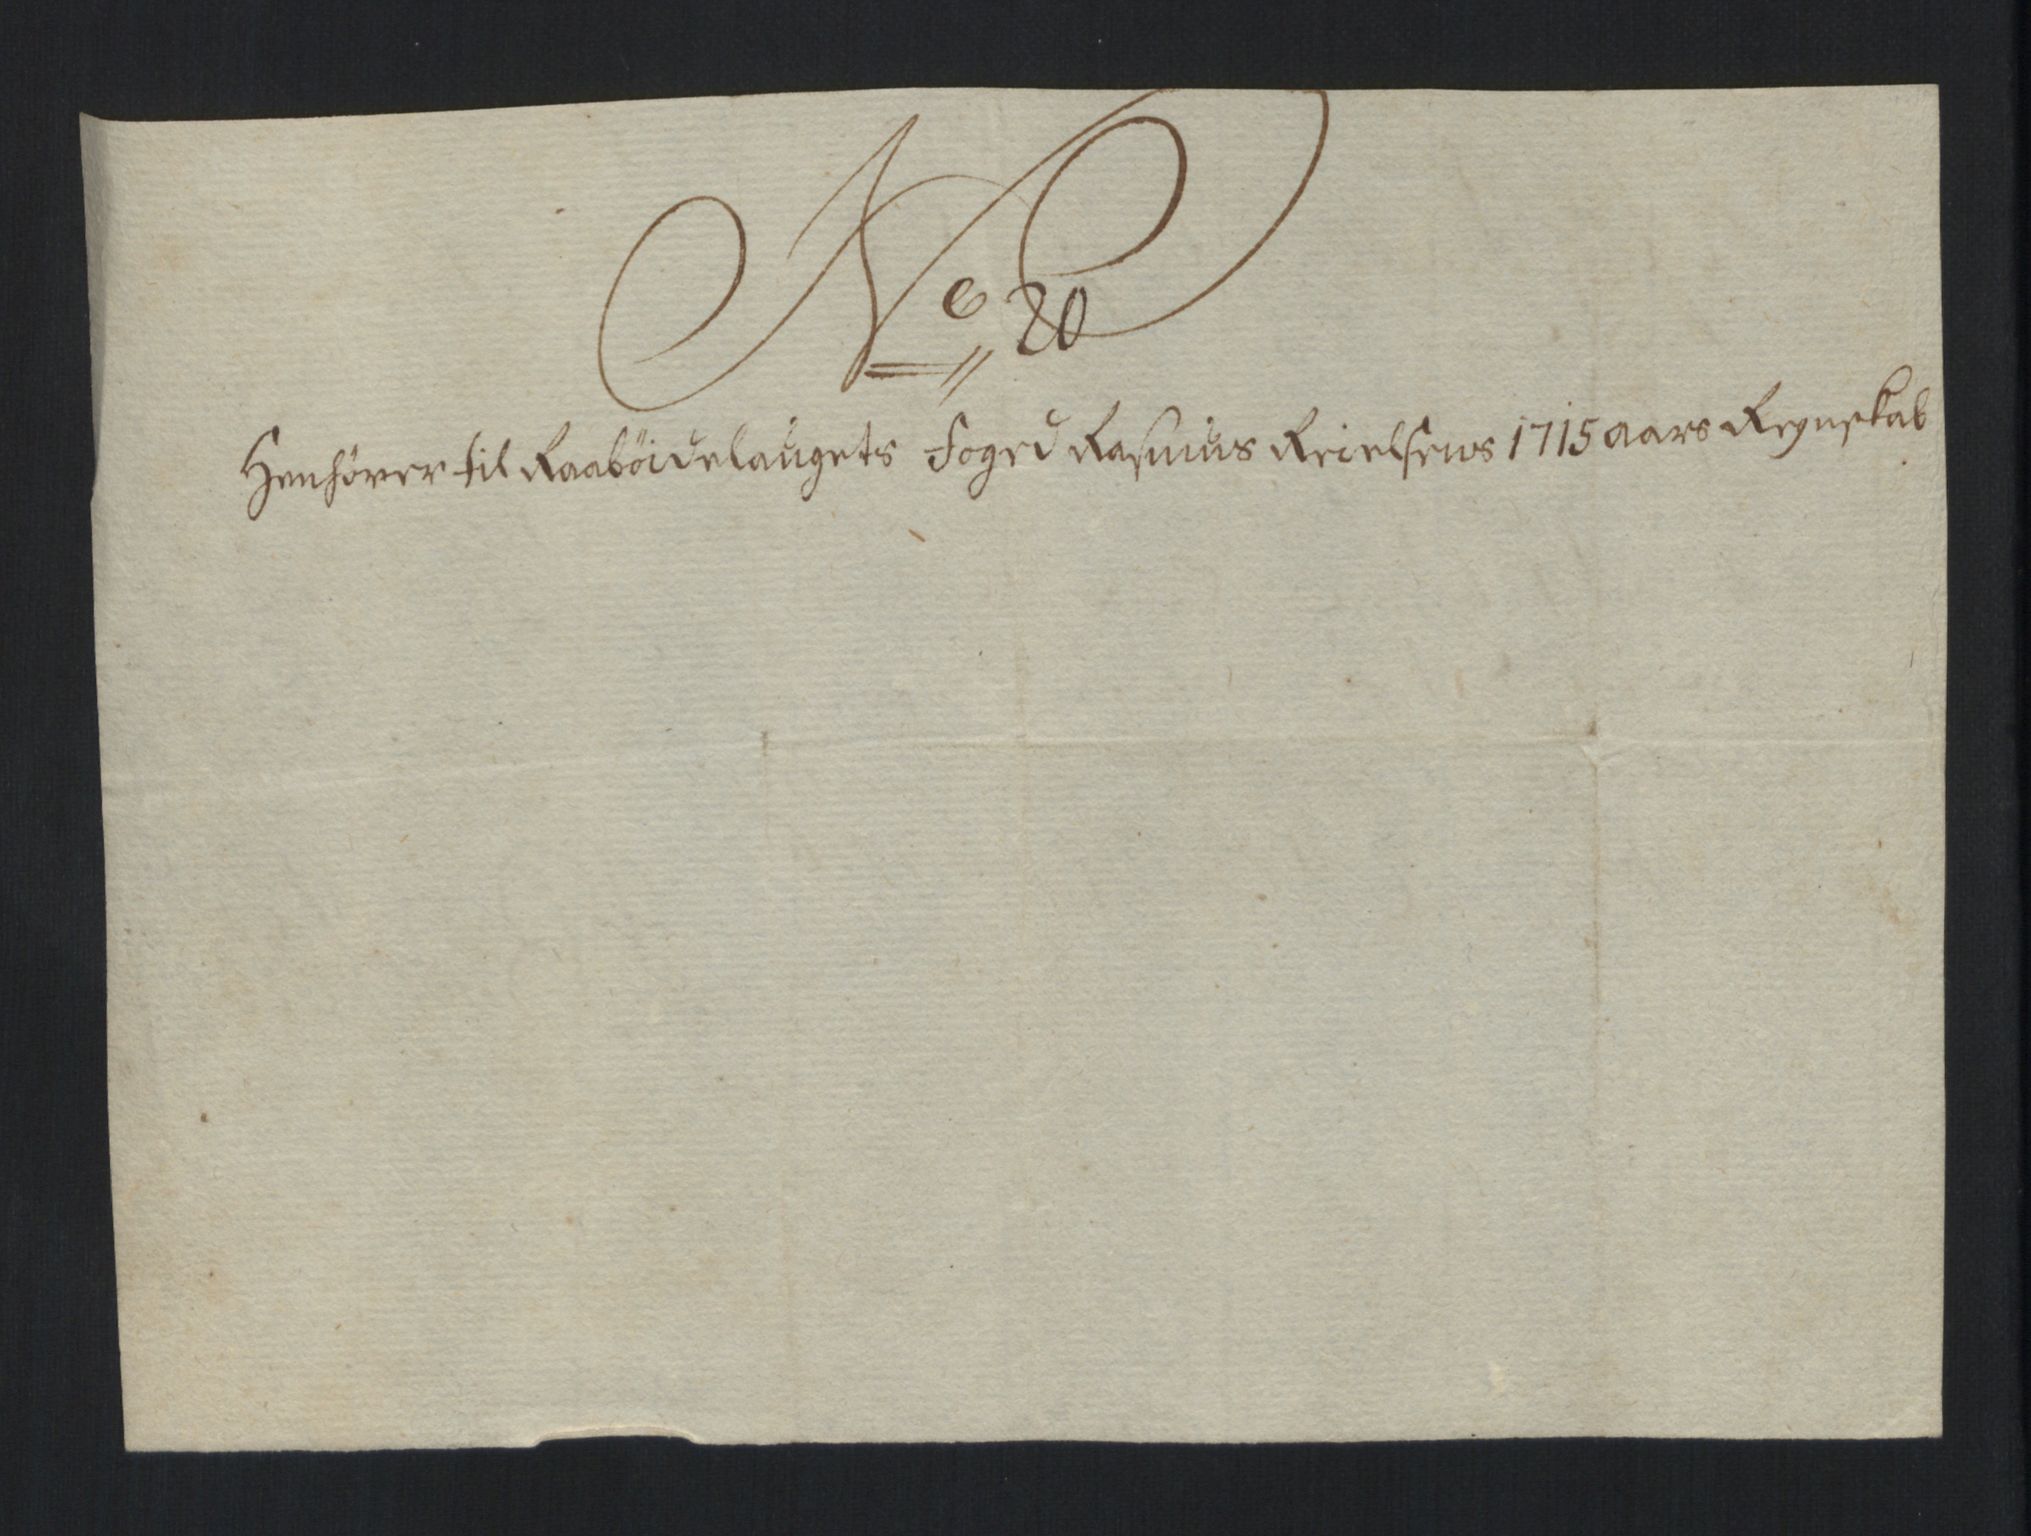 No 20
Henhörer til Raaböidelaugets Foged Rasmus Kielsens 1715 aars Regnskab